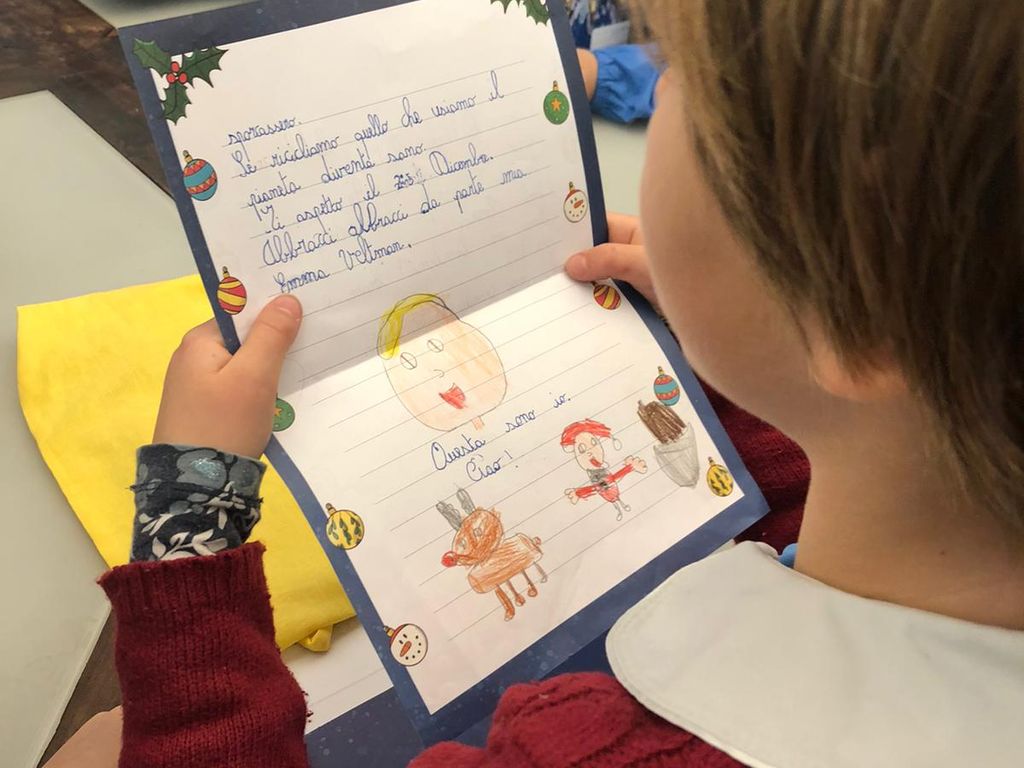 sporcassero.
Se ricicliamo quello che usiamo il
pianeta diventa sano.
Ti aspetto il Dicembre.
Abbracci abbracci da parte mia
Emma Veltman.
Questa sono io.
Ciao!